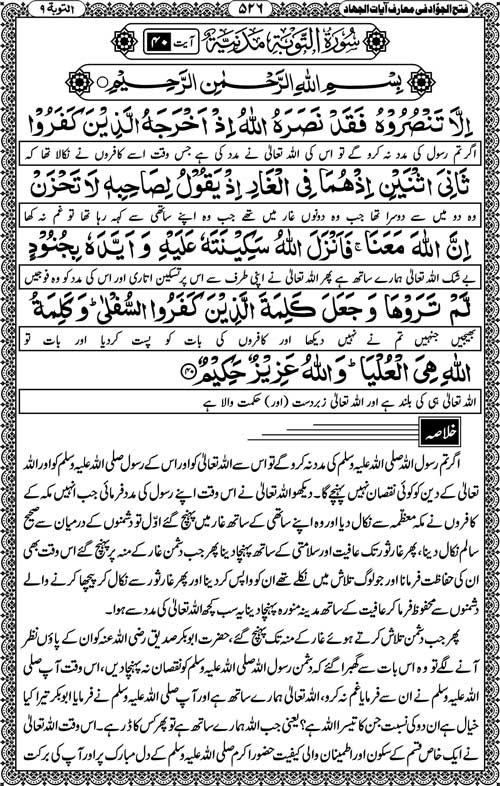 فتح الجوّاد فی معارف آیات الجہاد ۵۲۶ التوبة ۹
سُوْرَةُ التَّوْبَةِ مَدَنِيَّةٌ آیت ۴۰
بِسْمِ اللهِ الرَّحْمٰنِ الرَّحِيْمِ
اِلَّا تَنْصُرُوْهُ فَقَدْ نَصَرَهُ اللهُ اِذْ اَخْرَجَهُ الَّذِيْنَ كَفَرُوْا
اگر تم رسول کی مدد نہ کرو گے تو اس کی اللہ تعالیٰ نے مدد کی ہے جس وقت اسے کافروں نے نکالا تھا کہ
ثَانِيَ اثْنَيْنِ اِذْ هُمَا فِي الْغَارِ اِذْ يَقُوْلُ لِصَاحِبِهٖ لَا تَحْزَنْ
وہ دو میں سے دوسرا تھا جب وہ دونوں غار میں تھے جب وہ اپنے ساتھی سے کہہ رہا تھا تو غم نہ کھا
اِنَّ اللهَ مَعَنَا ۚ فَاَنْزَلَ اللهُ سَكِيْنَتَهٗ عَلَيْهِ وَ اَيَّدَهٗ بِجُنُوْدٍ
بے شک اللہ تعالیٰ ہمارے ساتھ ہے پھر اللہ تعالیٰ نے اپنی طرف سے اس پر تسکین اتاری اور اس کی مدد کو وہ فوجیں
لَّمْ تَرَوْهَا وَ جَعَلَ كَلِمَةَ الَّذِيْنَ كَفَرُوا السُّفْلٰى ؕ وَ كَلِمَةُ
بھیجیں جنہیں تم نے نہیں دیکھا اور کافروں کی بات کو پست کردیا اور بات تو
اللهِ هِيَ الْعُلْيَا ؕ وَ اللهُ عَزِيْزٌ حَكِيْمٌ ﴿۴۰﴾
اللہ تعالیٰ ہی کی بلند ہے اور اللہ تعالیٰ زبردست (اور) حکمت والا ہے
خلاصہ
اگر تم رسول اللہ صلی اللہ علیہ وسلم کی مدد نہ کرو گے تو اس سے اللہ تعالیٰ کو اور اس کے رسول صلی اللہ علیہ وسلم کو اور اللہ
تعالیٰ کے دین کو کوئی نقصان نہیں پہنچے گا۔ دیکھو اللہ تعالیٰ نے اس وقت اپنے رسول کی مدد فرمائی جب انہیں مکہ کے
کافروں نے مکہ معظمہ سے نکال دیا اور وہ اپنے ساتھی کے ساتھ غار میں پہنچ گئے اوّل تو دشمنوں کے درمیان سے صحیح
سالم نکال دینا، پھر غار ثور تک عافیت اور سلامتی کے ساتھ پہنچا دینا پھر جب دشمن غار کے منہ پر پہنچ گئے اس وقت بھی
ان کی حفاظت فرمانا اور جو لوگ تلاش میں نکلے تھے ان کو واپس کر دینا اور پھر غار ثور سے نکال کر پیچھا کرنے والے
دشمنوں سے محفوظ فرما کر عافیت کے ساتھ مدینہ منورہ پہنچا دینا یہ سب کچھ اللہ تعالیٰ کی مدد سے ہوا۔
پھر جب دشمن تلاش کرتے ہوئے غار کے منہ تک پہنچ گئے، حضرت ابوبکر صدیق رضی اللہ عنہ کو ان کے پاؤں نظر
آنے لگے تو وہ اس بات سے گھبرا گئے کہ دشمن رسول اللہ صلی اللہ علیہ وسلم کو نقصان نہ پہنچا دیں، اس وقت آپ صلی
اللہ علیہ وسلم نے ان سے فرمایا غم نہ کرو، اللہ تعالیٰ ہمارے ساتھ ہے اور آپ صلی اللہ علیہ وسلم نے فرمایا ابوبکر تیرا کیا
خیال ہے ان دو کی نسبت جن کا تیسرا اللہ ہے؟ یعنی جب اللہ ہمارے ساتھ ہے تو پھر کس کا ڈر ہے۔ اس وقت اللہ تعالیٰ
نے ایک خاص قسم کے سکون اور اطمینان والی کیفیت حضور اکرم صلی اللہ علیہ وسلم کے دل مبارک پر اور آپ کی برکت